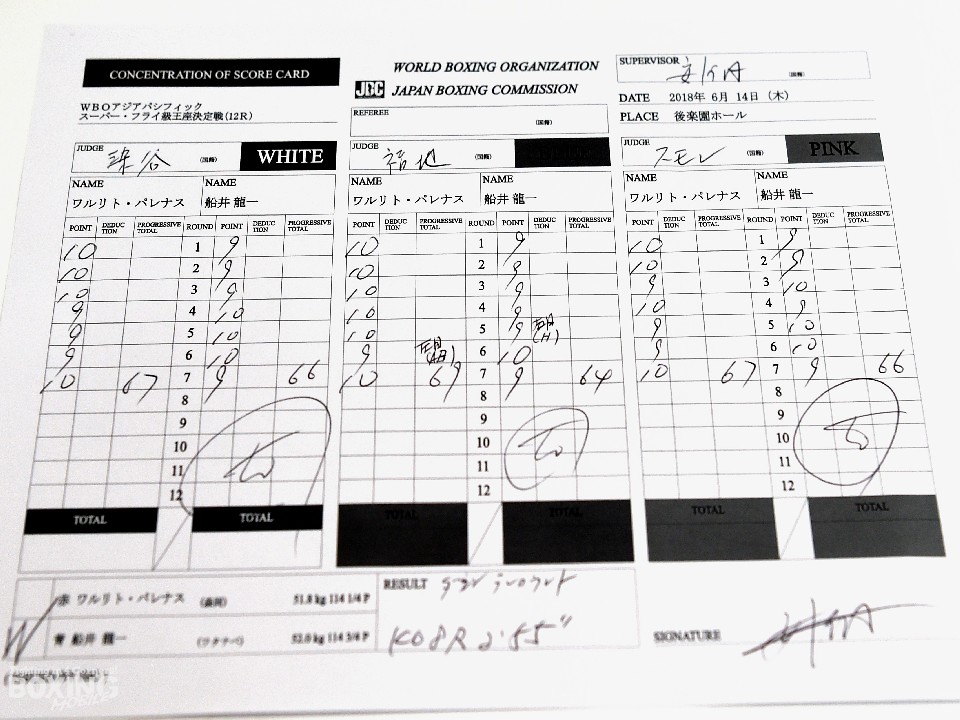 CONCENTRATION OF SCORE CARD
WORLD BOXING ORGANIZATION
JBC JAPAN BOXING COMMISSION
SUPERVISOR (国籍)
DATE 2018年 6月 14日 (木)
PLACE 後楽園ホール
WBOアジアパシフィック
スーパー・フライ級王座決定戦(12R)
REFEREE (国籍)
JUDGE 染谷 (国籍) WHITE
JUDGE 福地 (国籍)
JUDGE (国籍) PINK
NAME ワルリト・パレナス NAME 船井 龍一
NAME ワルリト・パレナス NAME 船井 龍一
NAME ワルリト・パレナス NAME 船井 龍一
POINT DEDUCTION PROGRESSIVE TOTAL ROUND POINT DEDUCTION PROGRESSIVE TOTAL
POINT DEDUCTION PROGRESSIVE TOTAL ROUND POINT DEDUCTION PROGRESSIVE TOTAL
POINT DEDUCTION PROGRESSIVE TOTAL ROUND POINT DEDUCTION PROGRESSIVE TOTAL
10 1 9 10 1 9 10 1 9
10 2 9 10 2 9 10 2 9
10 3 9 10 3 9 9 3 10
9 4 10 10 4 9 10 4 9
9 5 10 10 5 9 9 5 10
9 6 10 9 6 10 9 6 10
10 67 7 9 66 10 69 7 9 64 10 67 7 9 66
8 8 8
9 9 9
10 10 10
11 11 11
12 12 12
TOTAL TOTAL TOTAL TOTAL TOTAL TOTAL
赤 ワルリト・パレナス (森岡) 51.8 kg 114 1/4 P
W 青 船井 龍一 (ワタナベ) 52.0 kg 114 3/4 P
RESULT
KO 8R 2'55"
SIGNATURE
BOXING
MOBILE